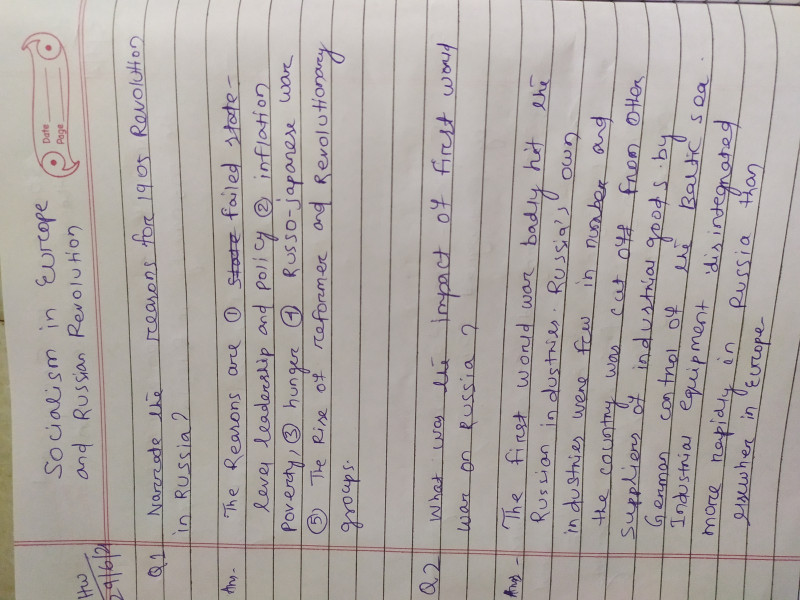 Date
Page
Socialism in Europe
and Russian Revolution
HW
29/6/21
Q1 Narrate the reasons for 1905 Revolution
in Russia?
Ans.- The Reasons are ① State failed state-
level leadership and policy ② inflation
poverty, ③ hunger ④ Russo-japanese war
⑤ The Rise of reformer and Revolutionary
groups.
Q2 What was the impact of First world
war on Russia?
Ans.- The first world war badly hit the
Russian industries. Russia's own
industries were few in number and
the country was cut off from other
suppliers of industrial goods by
German control of the Baltic sea.
Industrial equipment disintegrated
more rapidly in Russia than
elsewher in Europe